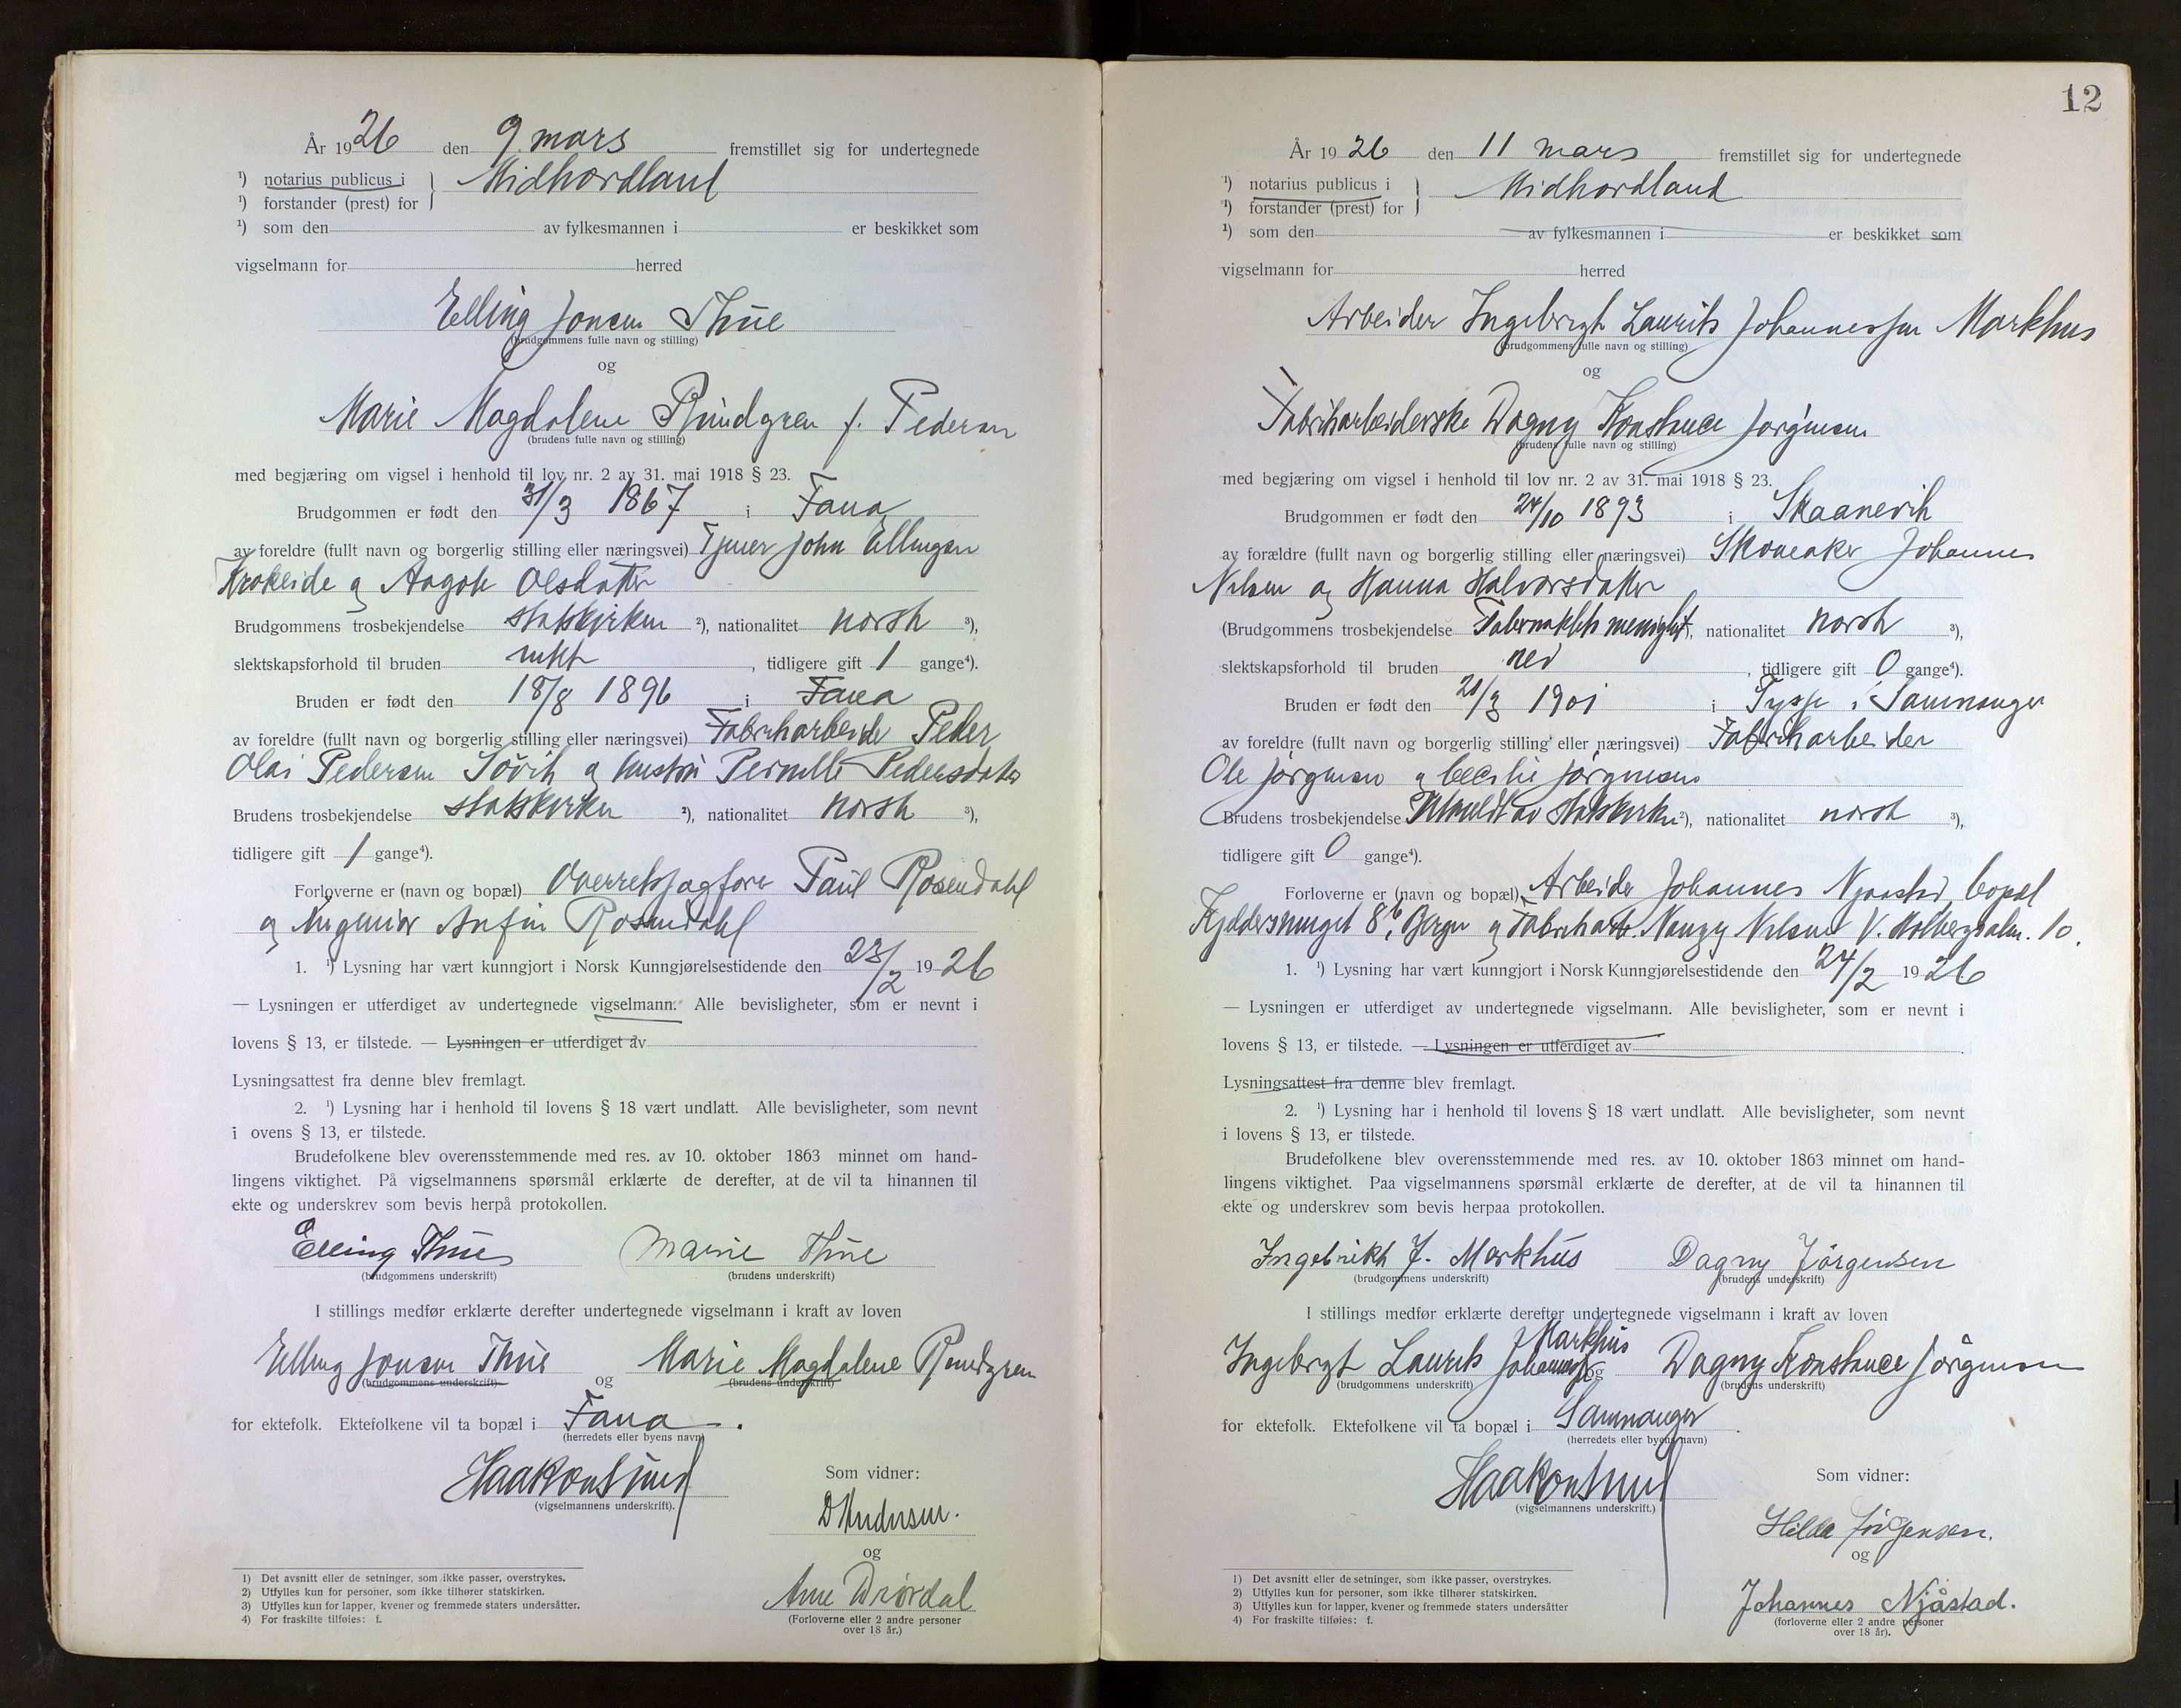 År 1926 den 9. mars fremstillet sig for undertegnede
¹) notarius publicus i } Midhordland
¹) forstander (prest) for
¹) som den av fylkesmannen i er beskikket som
vigselmann for herred
Elling Jonsen Thue
(brudgommens fulle navn og stilling)
og
Marie Magdalene Rundgren f. Pedersen
(brudens fulle navn og stilling)
med begjæring om vigsel i henhold til lov nr. 2 av 31. mai 1918 § 23.
Brudgommen er født den 31/3 1867 i Fana
av foreldre (fullt navn og borgerlig stilling eller næringsvei) John Ellingsen
Krokeide og Aagote Olsdatter
Brudgommens trosbekjendelse statskirken ²), nationalitet norsk ³),
slektskapsforhold til bruden intet, tidligere gift 1 gange⁴).
Bruden er født den 18/8 1896 i Fana
av foreldre (fullt navn og borgerlig stilling eller næringsvei) Fabrikarbeider Peder
Olai Pedersen Søvik og hustru Pernille Pedersdatter
Brudens trosbekjendelse statskirken ²), nationalitet norsk ³),
tidligere gift 1 gange⁴).
Forloverne er (navn og bopæl) Overretssagfører Paul Rosendahl
og Ingeniør Anfin Rosendahl
1. ¹) Lysning har vært kunngjort i Norsk Kunngjørelsestidende den 23/2 1926
— Lysningen er utferdiget av undertegnede vigselmann. Alle bevisligheter, som er nevnt i
lovens § 13, er tilstede. — Lysningen er utferdiget av
Lysningsattest fra denne blev fremlagt.
2. ¹) Lysning har i henhold til lovens § 18 vært undlatt. Alle bevisligheter, som nevnt
i ovens § 13, er tilstede.
Brudefolkene blev overensstemmende med res. av 10. oktober 1863 minnet om hand-
lingens viktighet. På vigselmannens spørsmål erklærte de derefter, at de vil ta hinannen til
ekte og underskrev som bevis herpå protokollen.
Elling Thue Marie Thue
(brudgommens underskrift) (brudens underskrift)
I stillings medfør erklærte derefter undertegnede vigselmann i kraft av loven
Elling Jonsen Thue og Marie Magdalene Rundgren
(brudgommens underskrift) (brudens underskrift)
for ektefolk. Ektefolkene vil ta bopæl i Fana.
(herredets eller byens navn)
Haakon Lund
(vigselmannens underskrift).
Som vidner:
D Andersen.
og
Arne
(Forloverne eller 2 andre personer
over 18 år.)
1) Det avsnitt eller de setninger, som ikke passer, overstrykes.
2) Utfylles kun for personer, som ikke tilhører statskirken.
3) Utfylles kun for lapper, kvener og fremmede staters undersåtter.
4) For fraskilte tilføies: f.
12
År 1926 den 11 mars fremstillet sig for undertegnede
¹) notarius publicus i } Midhordland
¹) forstander (prest) for
¹) som den av fylkesmannen i er beskikket som
vigselmann for herred
Arbeider Ingebrigt Laurits Johannessen Markhus
(brudgommens fulle navn og stilling)
og
Fabrikarbeiderske Dagny Konstance Jørgensen
(brudens fulle navn og stilling)
med begjæring om vigsel i henhold til lov nr. 2 av 31. mai 1918 § 23.
Brudgommen er født den 24/10 1893 i Skaanevik
av forældre (fullt navn og borgerlig stilling eller næringsvei) Skomaker Johannes
Nilsen og Hanna Halvorsdatter
(Brudgommens trosbekjendelse Tabernaklets menighet), nationalitet norsk ³),
slektskapsforhold til bruden nei, tidligere gift 0 gange⁴).
Bruden er født den 21/3 1901 i Tysse i Samnanger
av foreldre (fullt navn og borgerlig stilling eller næringsvei) Fabrikarbeider
Ole Jørgensen og Cecilie Jørgensen
Brudens trosbekjendelse Utmeldt av Statskirken ²), nationalitet norsk ³),
tidligere gift 0 gange⁴).
Forloverne er (navn og bopæl) Arbeider Johannes Njaastad, bopæl
8b, Bergen og Fabrikarb. Nanzy Nilsen V. Holbergsalm. 10.
1. ¹) Lysning har vært kunngjort i Norsk Kunngjørelsestidende den 24/2 1926
— Lysningen er utferdiget av undertegnede vigselmann. Alle bevisligheter, som er nevnt i
lovens § 13, er tilstede. — Lysningen er utferdiget av
Lysningsattest fra denne blev fremlagt.
2. ¹) Lysning har i henhold til lovens § 18 vært undlatt. Alle bevisligheter, som nevnt
i lovens § 13, er tilstede.
Brudefolkene blev overensstemmende med res. av 10. oktober 1863 minnet om hand-
lingens viktighet. Paa vigselmannens spørsmål erklærte de derefter, at de vil ta hinannen til
ekte og underskrev som bevis herpaa protokollen.
Ingebrikt J. Markhus Dagny Jörgensen
(brudgommens underskrift) (brudens underskrift)
I stillings medfør erklærte derefter undertegnede vigselmann i kraft av loven
Markhus
Ingebrigt Laurits Johannessen og Dagny Konstance Jørgensen
(brudgommens underskrift) (brudens underskrift)
for ektefolk. Ektefolkene vil ta bopæl i Samnanger.
(herredets eller byens navn)
Haakon Lund
(vigselmannens underskrift.)
Som vidner:
Hilda Jörgensen.
og
Johannes Njåstad.
(forloverne eller 2 andre personer
over 18 år).
1) Det avsnitt eller de setninger, som ikke passer, overstrykes.
2) Utfylles kun for personer, som ikke tilhører statskirken.
3) Utfylles kun for lapper, kvener og fremmede staters undersåtter
4) For fraskilte tilføies: f.